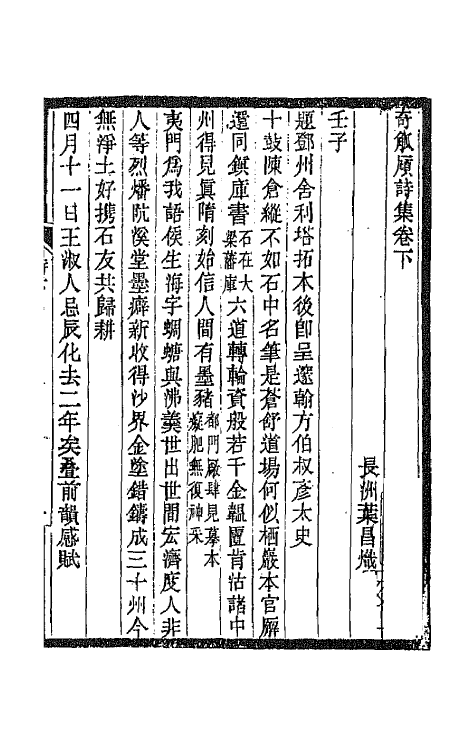 奇觚廎詩集卷下
長洲葉昌熾
壬子
題鄧州舍利塔拓本後卽呈邃翰方伯叔彥太史
十鼓陳倉縱不如石中名筆是蒼舒道場何似栖巖本官廨
還同鎮庫書石在大梁藩庫六道轉輪資般若千金韞匵肯沽諸中
州得見眞隋刻始信人間有墨豬都門廠肆見摹本癡肥無復神采
夷門爲我語侯生海宇蜩螗與沸羹世出世間宏濟度人非
人等烈燔阬儍堂墨癖新收得沙界金塗錯鑄成三十州今
無淨土好攜石友共歸耕
四月十一日王淑人忌辰化去二年矣疊前韻感賦